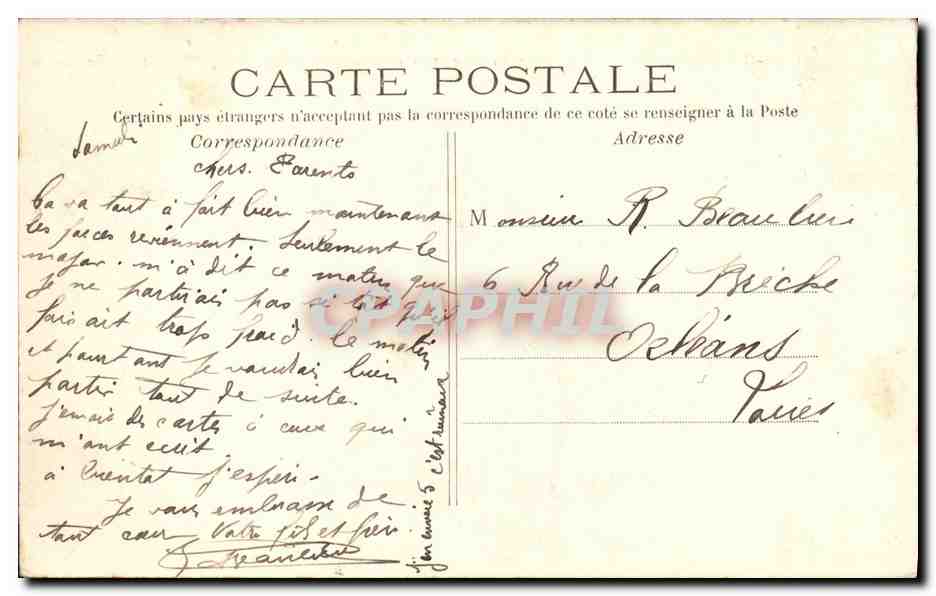 CARTE POSTALE
Certains pays étrangers n'acceptant pas la correspondance de ce coté se renseigner à la Poste
Correspondance
Adresse
Samedi
chers. Parents
Ca va tout à fait bien maintenant
les forces reviennent. Seulement le
major. m'à dit ce matin que
je ne partirais pas si tot qu'il
fais ait trop froid. le matin
et pourt ant je voudrai bien
partir tout de suite.
j'envoie des cartes à ceux qui
m'ont ecrit.
à bientot j'espère.
Je vous embrasse de
tout coeur Votre fils et frère.
Beaulieu
j'en envoie 5 c'est ruineux
Monsieur R. Beaulieu
6 Rue de la Brèche
Orléans
Loiret
CPAPHIL